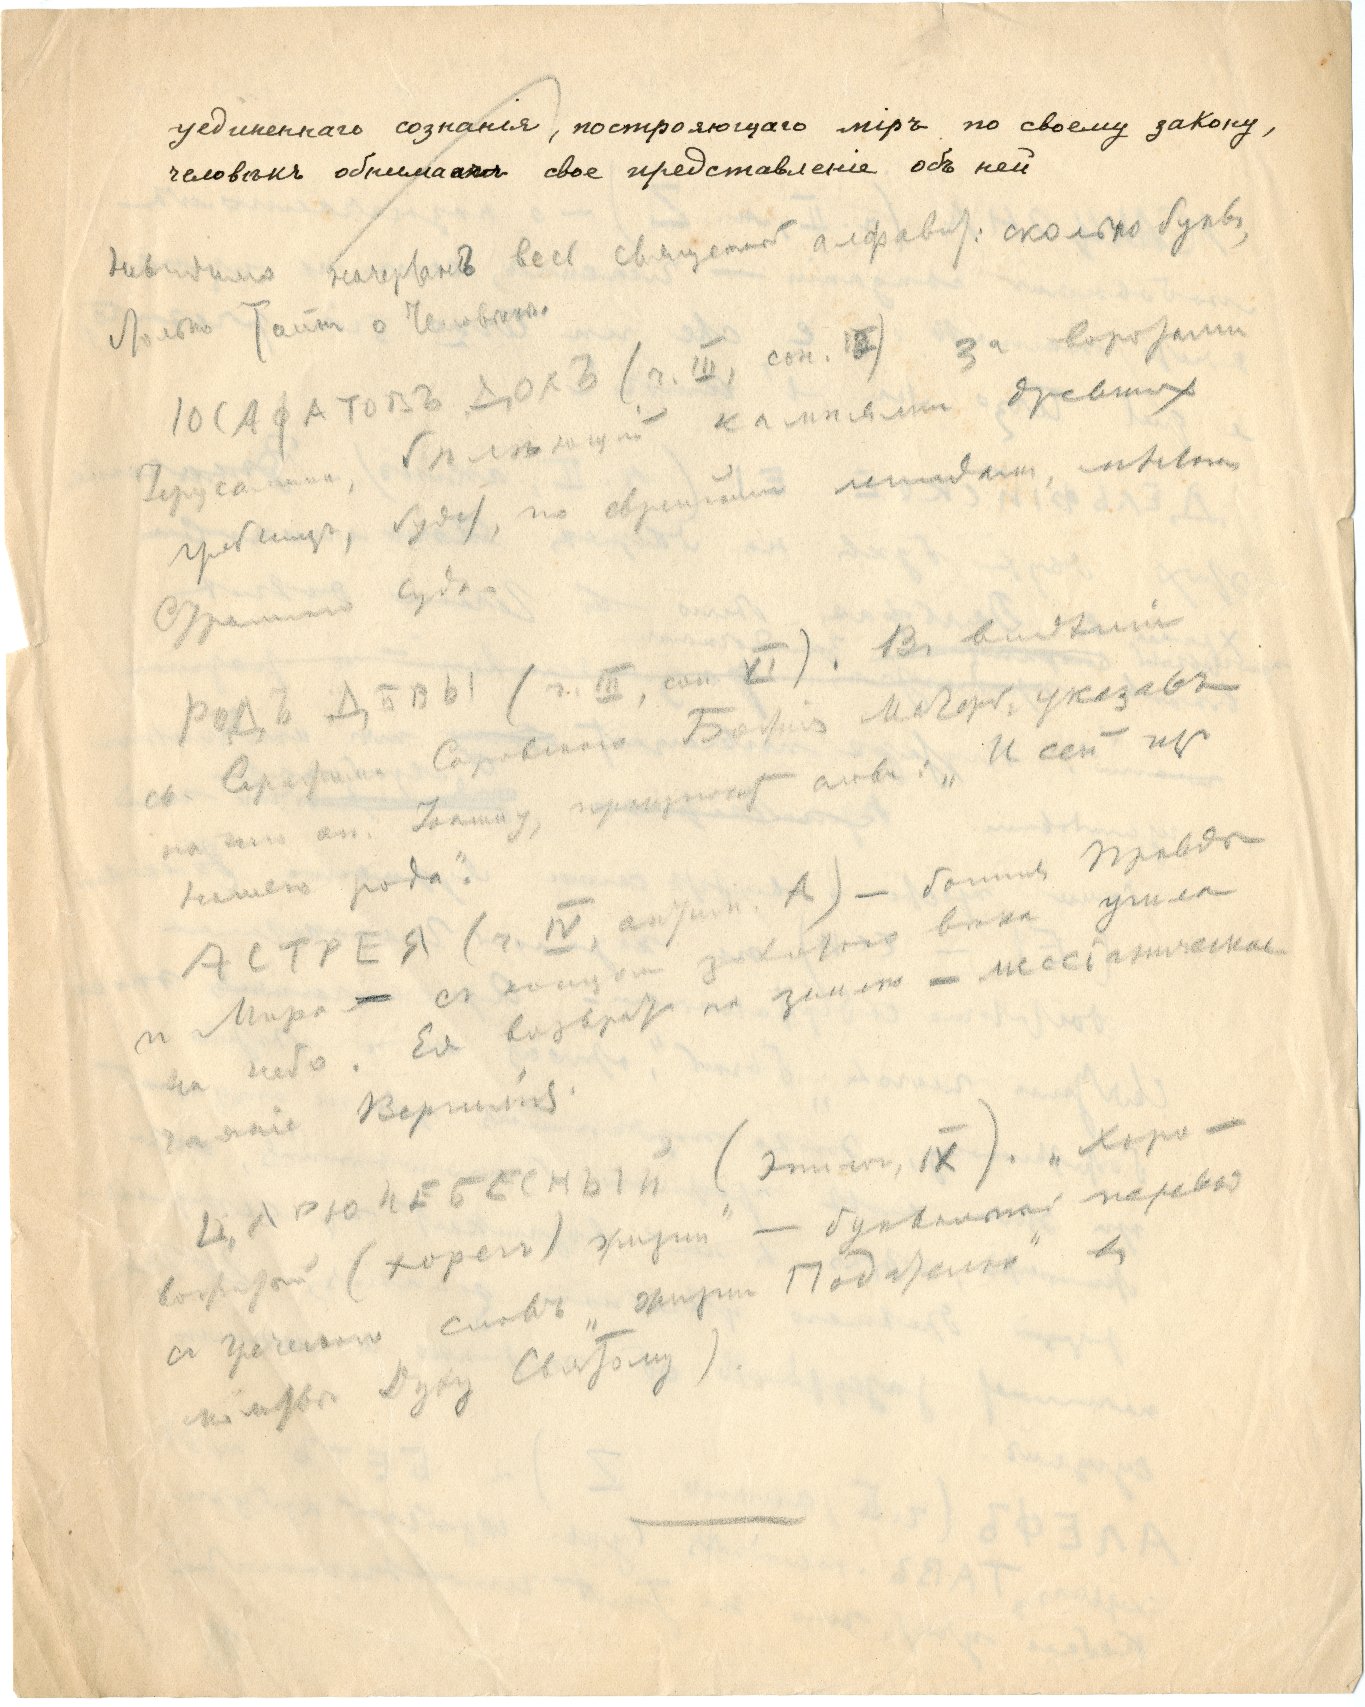 уединеннаго сознанія, построяющаго міръ по своему закону,
человѣкъ обнимаетъ свое представленіе объ ней
невидимо начертанъ весь священный алфавит: сколько буквъ,
столько Тайнъ о Человѣкѣ.
ІОСАФАТОВЪ ДОЛЪ (ч. III, сон. II) за воротами
Іерусалима, бѣлѣющій камнями древнихъ
гробницъ, будет, по еврейскимъ легендам, мѣстомъ
Страшнаго суда.
РОДЪ ДѢВЫ (ч. III, сон. XI). Въ видѣніи
св. Серафима Саровскаго Божія Матерь, указавъ
на него ап. Іоанну, произносит слова: „И сей из
нашего рода".
АСТРЕЯ (ч. IV, А) — богиня Правды
и Мира — съ концом золотого вѣка ушла
на небо. Ея возврат на землю — мессіаническое
чаяніе Вергилія.
ЦАРЮ НЕБЕСНЫЙ (эпилог, IX). „Хоро-
вожатый (хорегъ) жизни" — буквальный перевод
съ греческаго словъ „жизни Подателю" въ
молитвѣ Духу Святому).